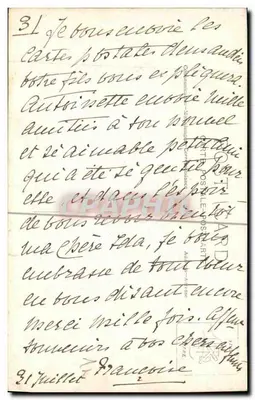 3/ Je vous envoie les
cartes postales demandées
votre fils vous expliquera.
Antoinette envoie mille
amitiés à son nouvel
et si aimable petit ami
qui a été si gentil pour
elle et dans l'espoir
de vous revoir bientôt
ma chère Ida, je vous
embrasse de tout coeur
en vous disant encore
merci mille fois. Affectueux
souvenirs à vos chers enfants
31 Juillet Françoise